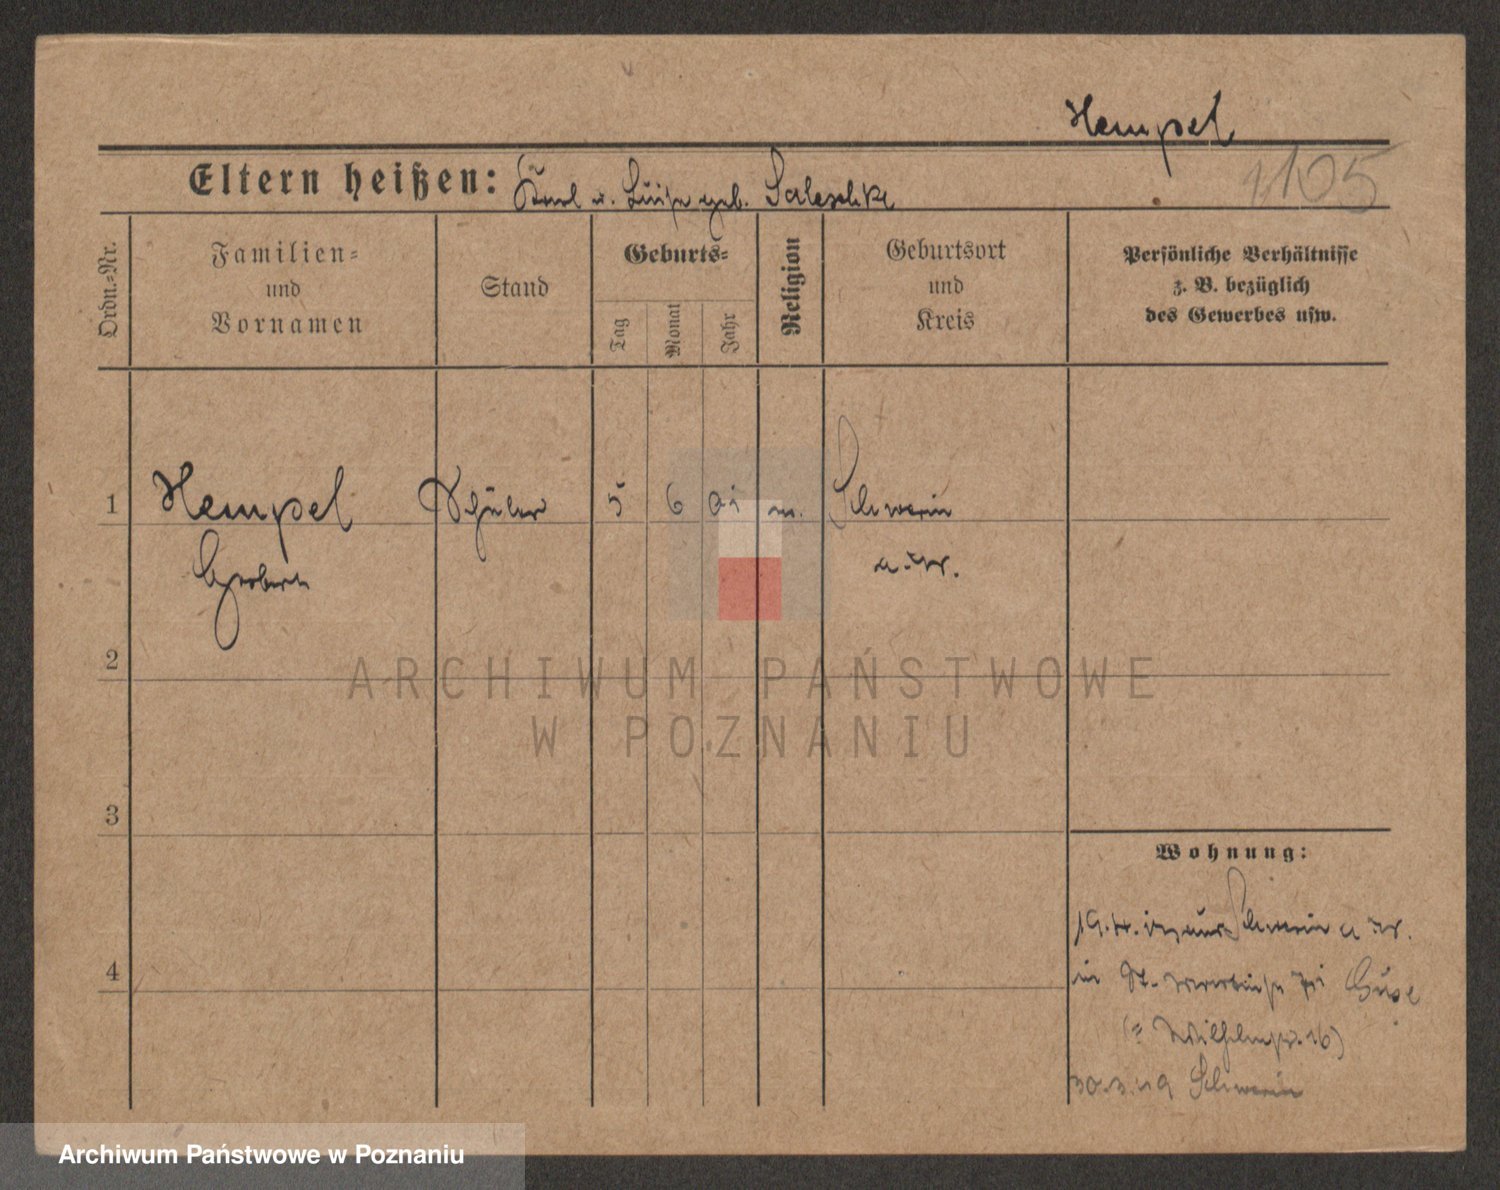 Hempel
Eltern heißen: Karl u. Luise geb. Saleschke
1105
Ordn.-Nr.
Familien-
und
Vornamen
Stand
Geburts-
Tag
Monat
Jahr
Religion
Geburtsort
und
Kreis
Persönliche Verhältnisse
z. B. bezüglich
des Gewerbes usw.
1
Hempel
Schüler
5
6
01
Schwerin
a. W.
2
3
4
Wohnung:
19. 4. Schwerin a W.
in St. bei Guse
30. 3. 19 Schwerin
ARCHIWUM PAŃSTWOWE
W POZNANIU
Archiwum Państwowe w Poznaniu